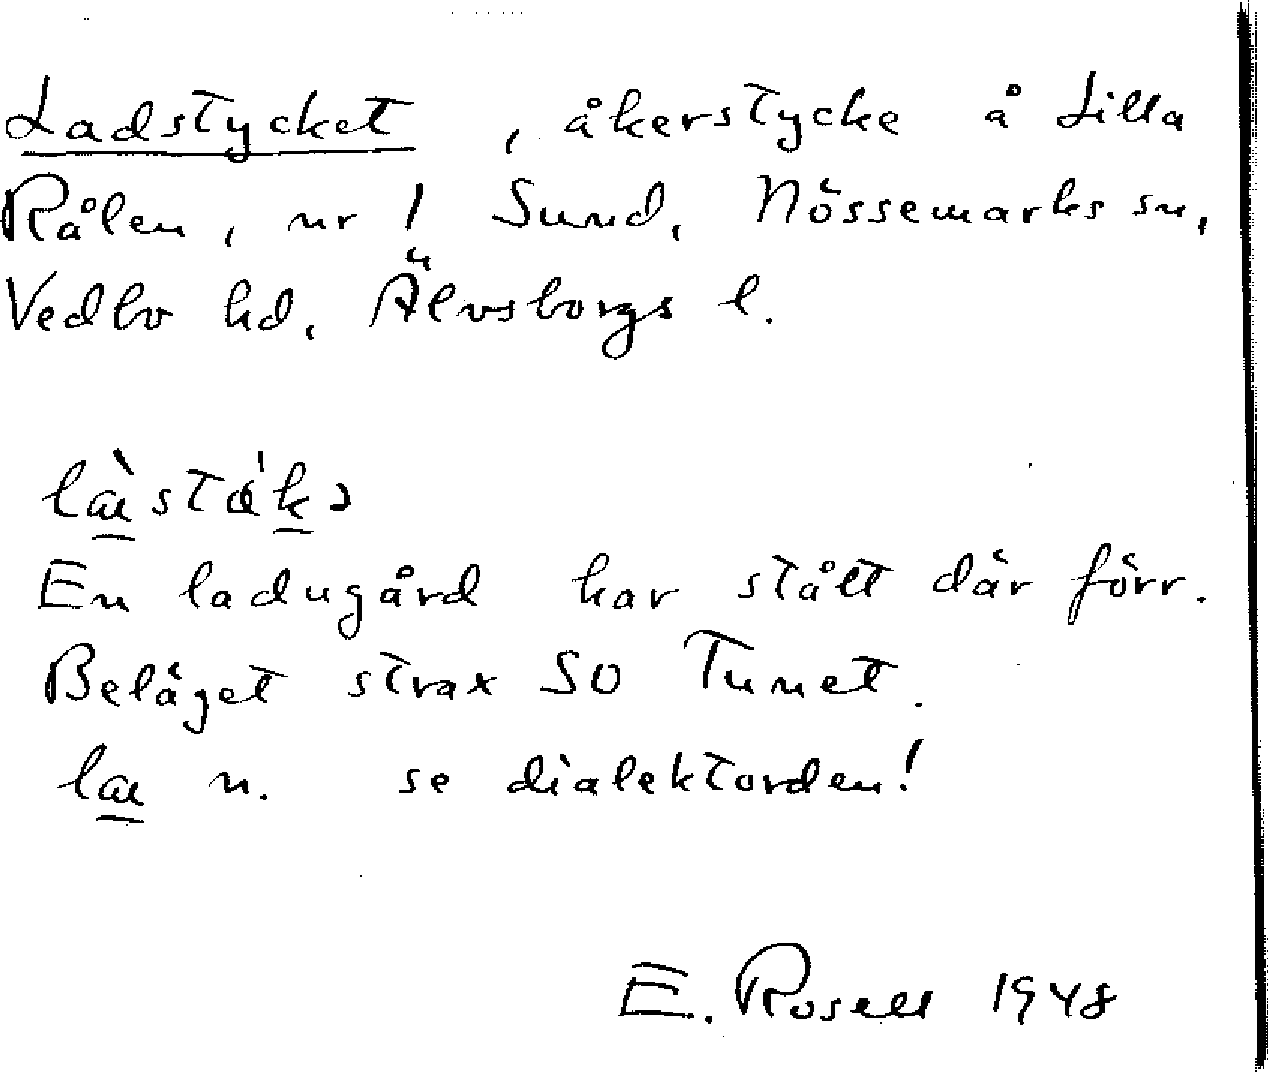 Ladstycket, åkerstycke å Lilla
Rålen, nr 1 Sund, Nössemarks sn,
Vedbo hd, Älvsborgs l.
En ladugård har stått där förr.
Beläget strax SO Tunet.
læ n. se dialektorden!
E. Rosell 1948